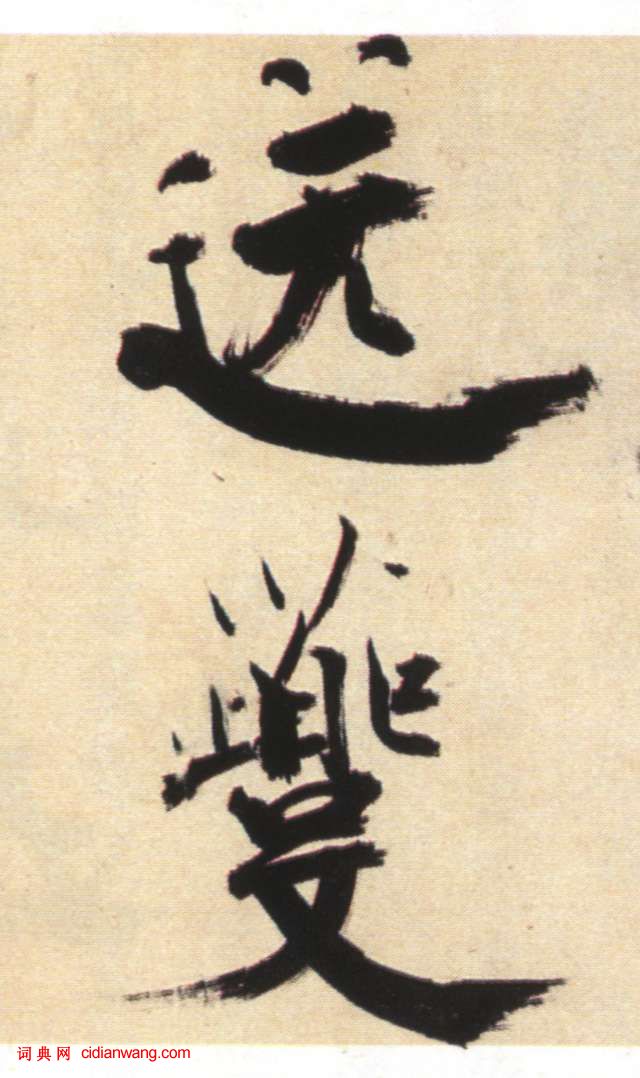 送夔
词典网 cidianwang.com